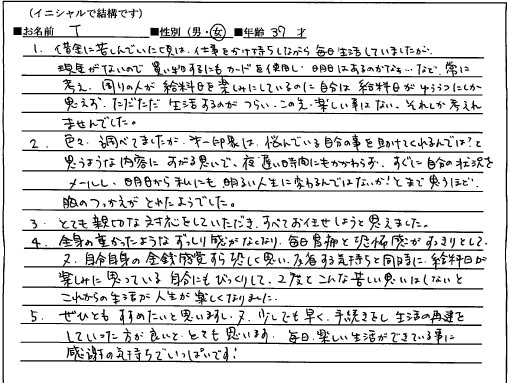 (イニシャルで結構です)
■お名前 T ■性別(男・女)■年齢 37 才
1. 借金に苦しんでいた頃は、仕事をかけ持ちしながら毎日生活していましたが、
現金がないので買い物するにもカードを使用し、明日はあるのかなぁ…など、常に
考え、周りの人が給料日を楽しみにしているのに自分は給料日がゆううつにしか
思えず、ただただ生活するのがつらい、この先楽しい事はない、それしか考えれ
ませんでした。
2. 色々調べてましたが、第一印象は、悩んでいる自分の事を助けてくれるんでは?と
思うような内容にすがる思いで、夜遅い時間にもかかわらず、すぐに自分の状況を
メールし、明日から私にも明るい人生に変わるんではないか!とまで思うほど、
胸のつっかえがとれたようでした。
3. とても親切な対応をしていただき、すべてお任せしようと思えました。
4. 全身の重かったようなずっしり感がなくなり、毎日胃痛と恐怖感がすっきりとして
又、自分自身の金銭感覚すら恐しく思い、反省する気持ちと同時に、給料日が
楽しみに思っている自分にもびっくりして、2度とこんな苦しい思いはしないと
これからの生活が人生が楽しくなりました。
5. ぜひともすすめたいと思いますし、又、少しでも早く、手続きをし生活の再建を
していった方が良いと、とても思います。毎日、楽しい生活ができている事に
感謝の気持ちでいっぱいです!